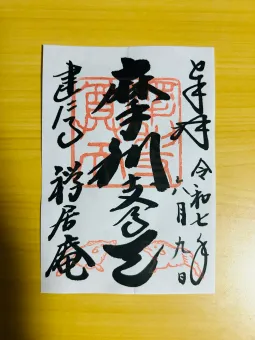 奉拝 令和七年
六月九日
摩利支天
建仁寺
禅居庵